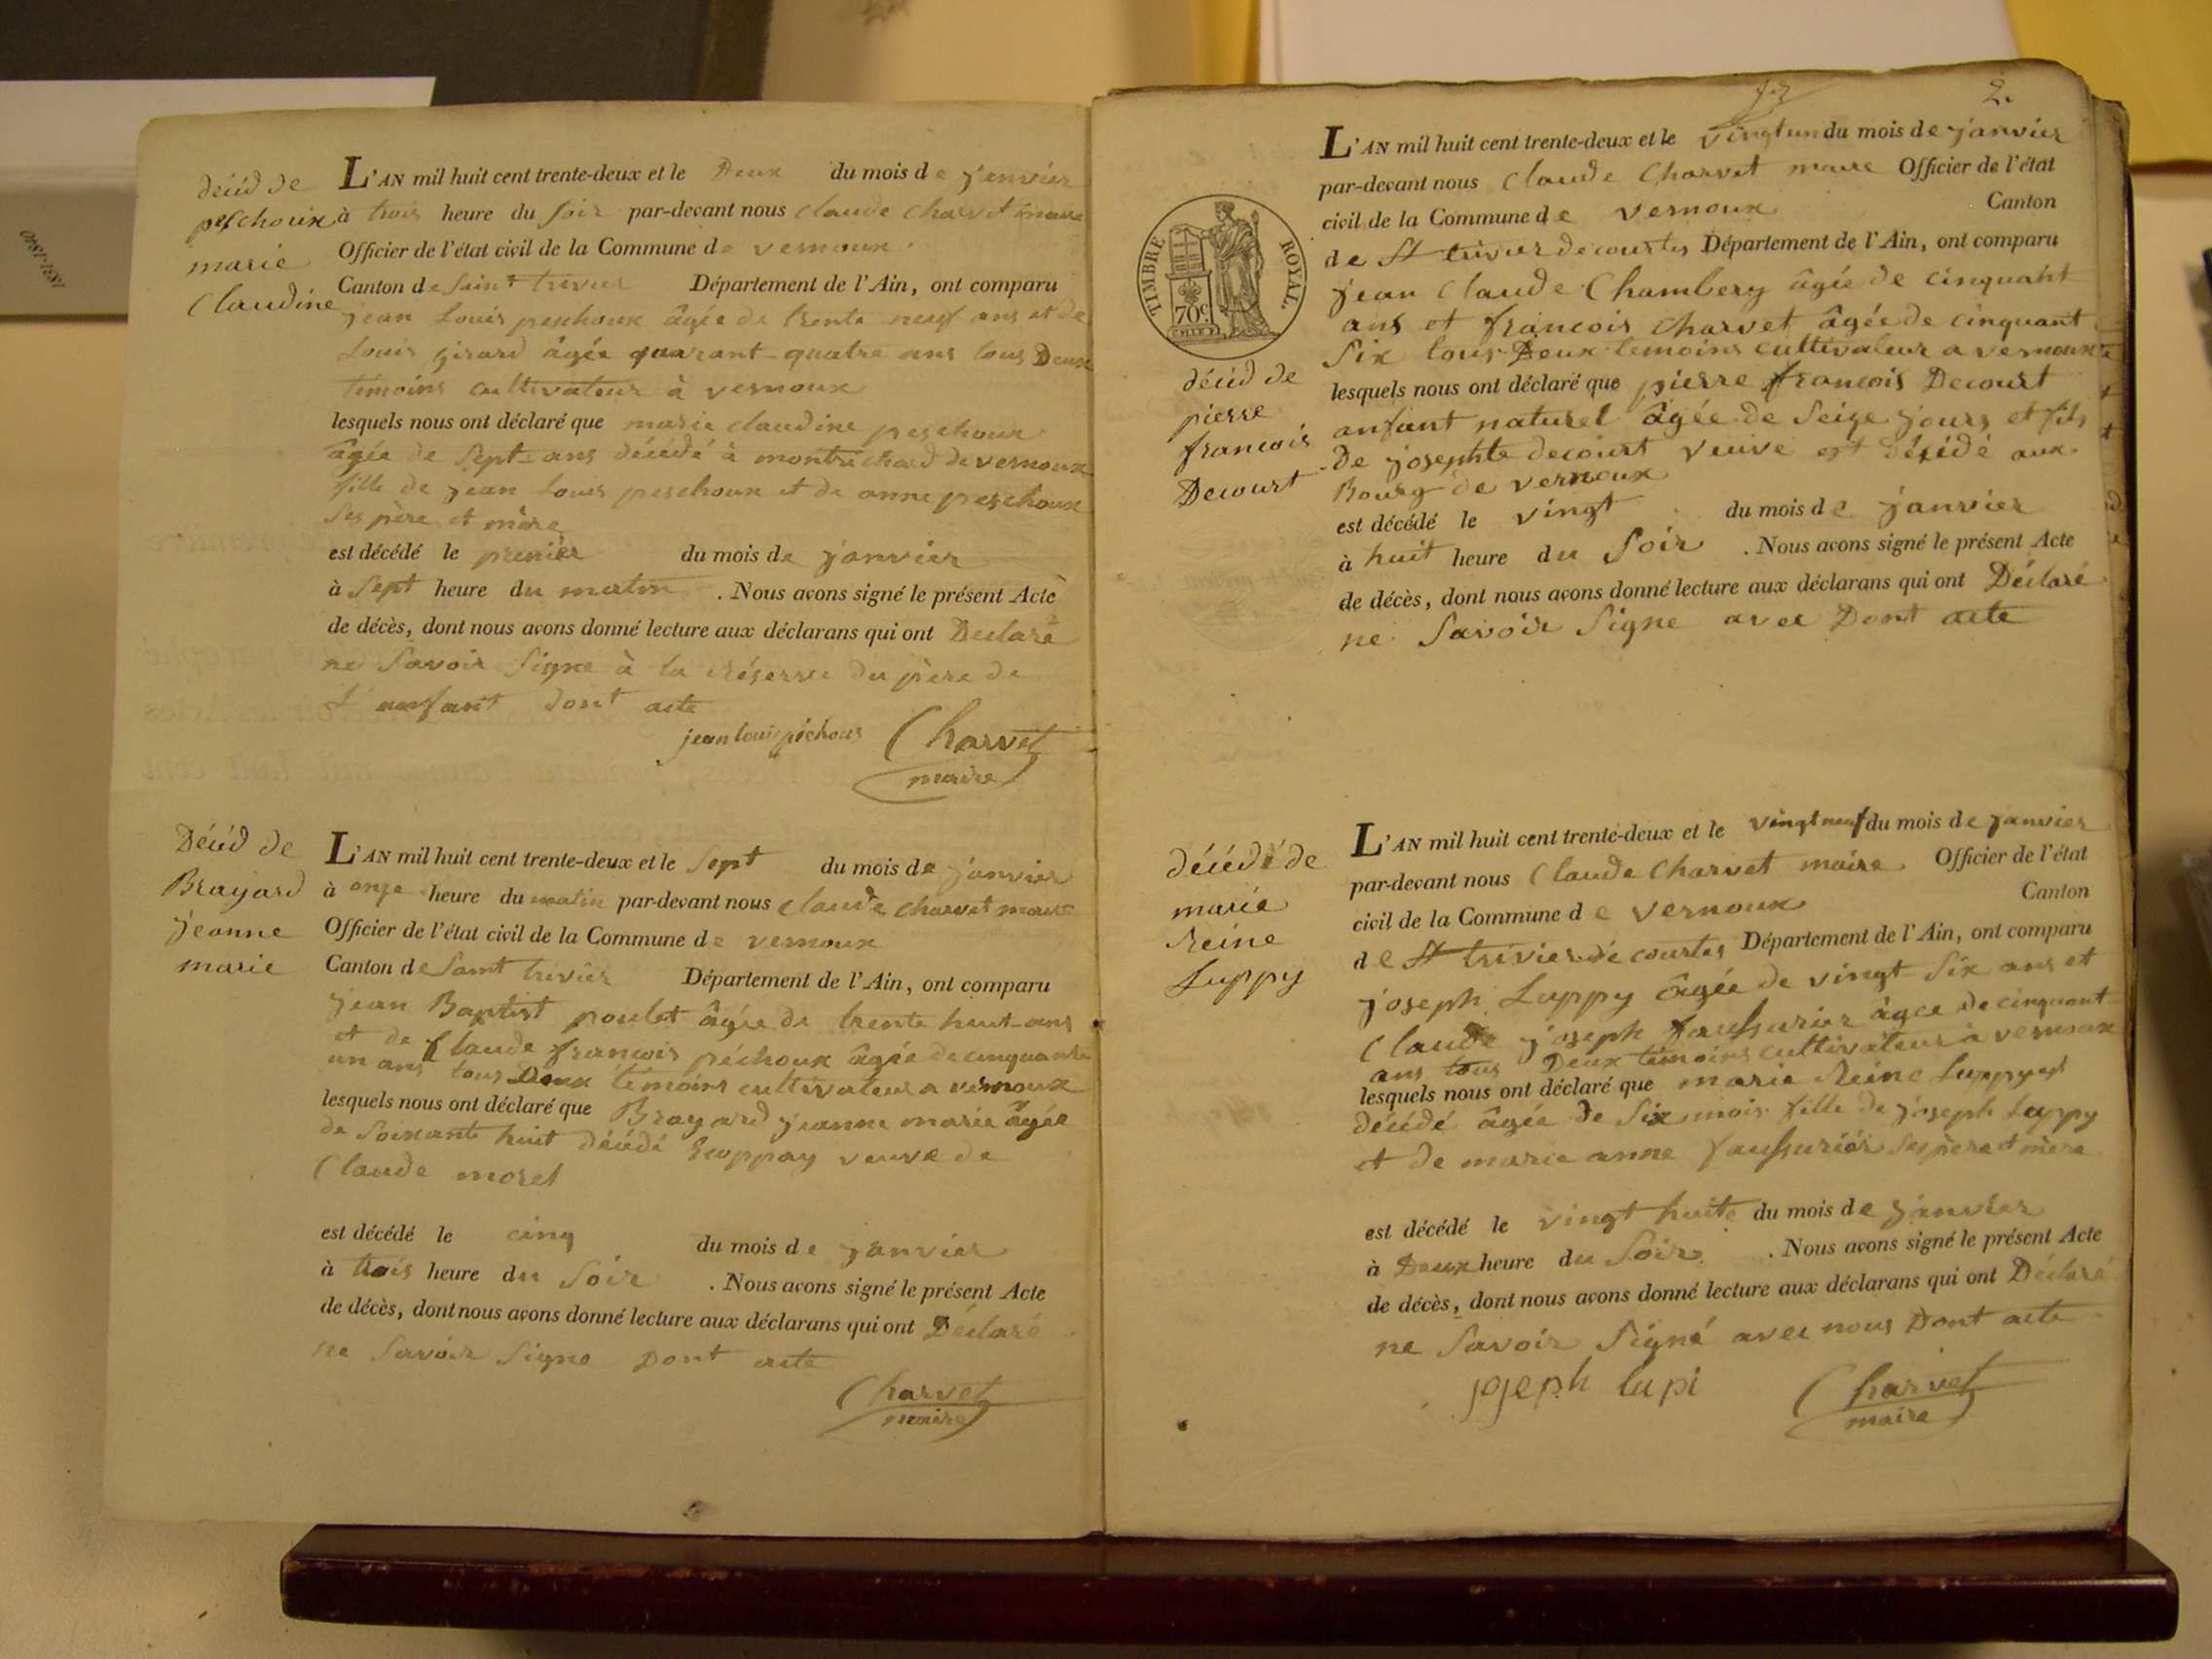 décéd de
peschoux
marie
Claudine
L'AN mil huit cent trente-deux et le Deux du mois de janvier
à trois heure du soir par-devant nous claude charvet maire
Officier de l'état civil de la Commune de vernoux
Canton de saint trivier Département de l'Ain, ont comparu
jean Louis peschoux âgée de trente neuf ans et de
Louis girard âgée quarant-quatre ans tous Deux
témoins cultivateur à vernoux
lesquels nous ont déclaré que marie claudine peschoux
âgée de sept-ans décédé à montrichard de vernoux
fille de jean Louis peschoux et de anne peschoux
ses père et mère
est décédé le premier du mois de janvier
à sept heure du matin . Nous avons signé le présent Acte
de décès, dont nous avons donné lecture aux déclarans qui ont Declaré
ne savoir signe à la réserve du père de
l'enfant dont acte
jean louis péchoux Charvet
maire
Décéd de
Brayard
jeanne
marie
L'AN mil huit cent trente-deux et le sept du mois de janvier
à onze heure du matin par-devant nous claude charvet maire
Officier de l'état civil de la Commune de vernoux
Canton de saint trivier Département de l'Ain, ont comparu
jean Baptist poulet âgée de trente huit-ans
et de Claude françois péchoux âgée de cinquante
un ans tous Deux témoins cultivateur a vernoux
lesquels nous ont déclaré que Brayard jeanne marie âgée
de soixante huit décédé veuve de
Claude morel
est décédé le cinq du mois de janvier
à trois heure du soir . Nous avons signé le présent Acte
de décès, dont nous avons donné lecture aux déclarans qui ont Déclaré
ne savoir signe Dont acte
Charvet
maire
2.
TIMBRE ROYAL.
70c.
L'AN mil huit cent trente-deux et le vingt un du mois de janvier
par-devant nous Claude Charvet maire Officier de l'état
civil de la Commune de vernoux Canton
de St trivier de courtes Département de l'Ain, ont comparu
jean Claude Chambery âgée de cinquant
ans et francois charvet âgée de cinquant
six tous Deux temoins cultivateur a vernoux
décéd de
pierre
francois
Decourt
lesquels nous ont déclaré que pierre francois Decourt
anfant naturel âgée de seize jours et fils
De josephte decourt veuve est décédé aux
Bourg de vernoux
est décédé le vingt du mois de janvier
à huit heure du soir . Nous avons signé le présent Acte
de décès, dont nous avons donné lecture aux déclarans qui ont Déclaré
ne savoir signe avec Dont acte
décédé de
marie
Reine
Luppy
L'AN mil huit cent trente-deux et le vingt neuf du mois de janvier
par-devant nous Claude Charvet maire Officier de l'état
civil de la Commune de vernoux Canton
de St trivier de courtes Département de l'Ain, ont comparu
joseph Luppy âgée de vingt six ans et
Claude joseph faussurier âgée de cinquant
ans tous Deux témoins cultivateur à vernoux
lesquels nous ont déclaré que marie Reine Luppy est
décédé âgée de six mois fille de joseph Luppy
et de marie anne faussuriér ses père et mère
est décédé le vingt huite du mois de janvier
à Deux heure du soir . Nous avons signé le présent Acte
de décès, dont nous avons donné lecture aux déclarans qui ont Déclaré
ne savoir signé avec nous Dont acte
joseph lupi Charvet
maire